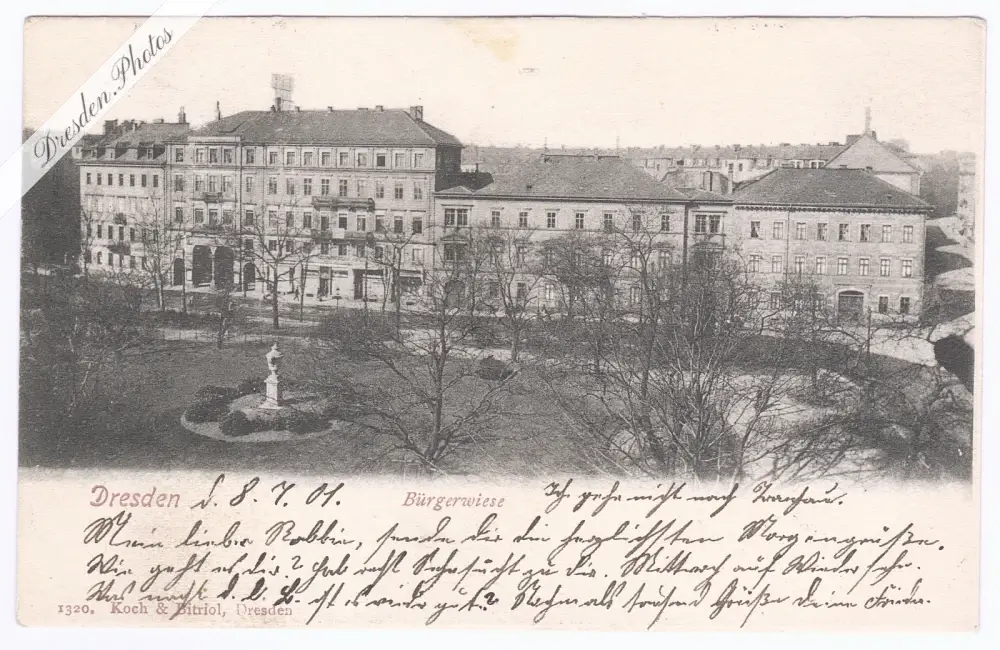 Dresden.Photos
Dresden d. 8. 7. 01. Bürgerwiese Ich gehe nicht nach
Mein lieber sende dir die herzlichsten Morgengrüße.
Wie geht es dir? Hab recht Sehnsucht zu dir. Mittwoch auf Wiedersehn.
Was macht d. l. ist es wieder gut? Nochmals tausend Grüße deine Frieda.
1320. Koch & Bitriol, Dresden